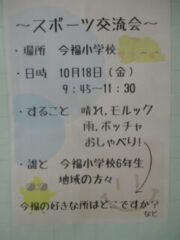 ～スポーツ交流会～
・場所 今福小学校
・日時 10月18日（金）
9：45～11：30
・すること 晴れ、モルック
雨、ボッチャ
おしゃべり！
・誰と 今福小学校6年生
地域の方々
今福の好きな所はどこですか？
など